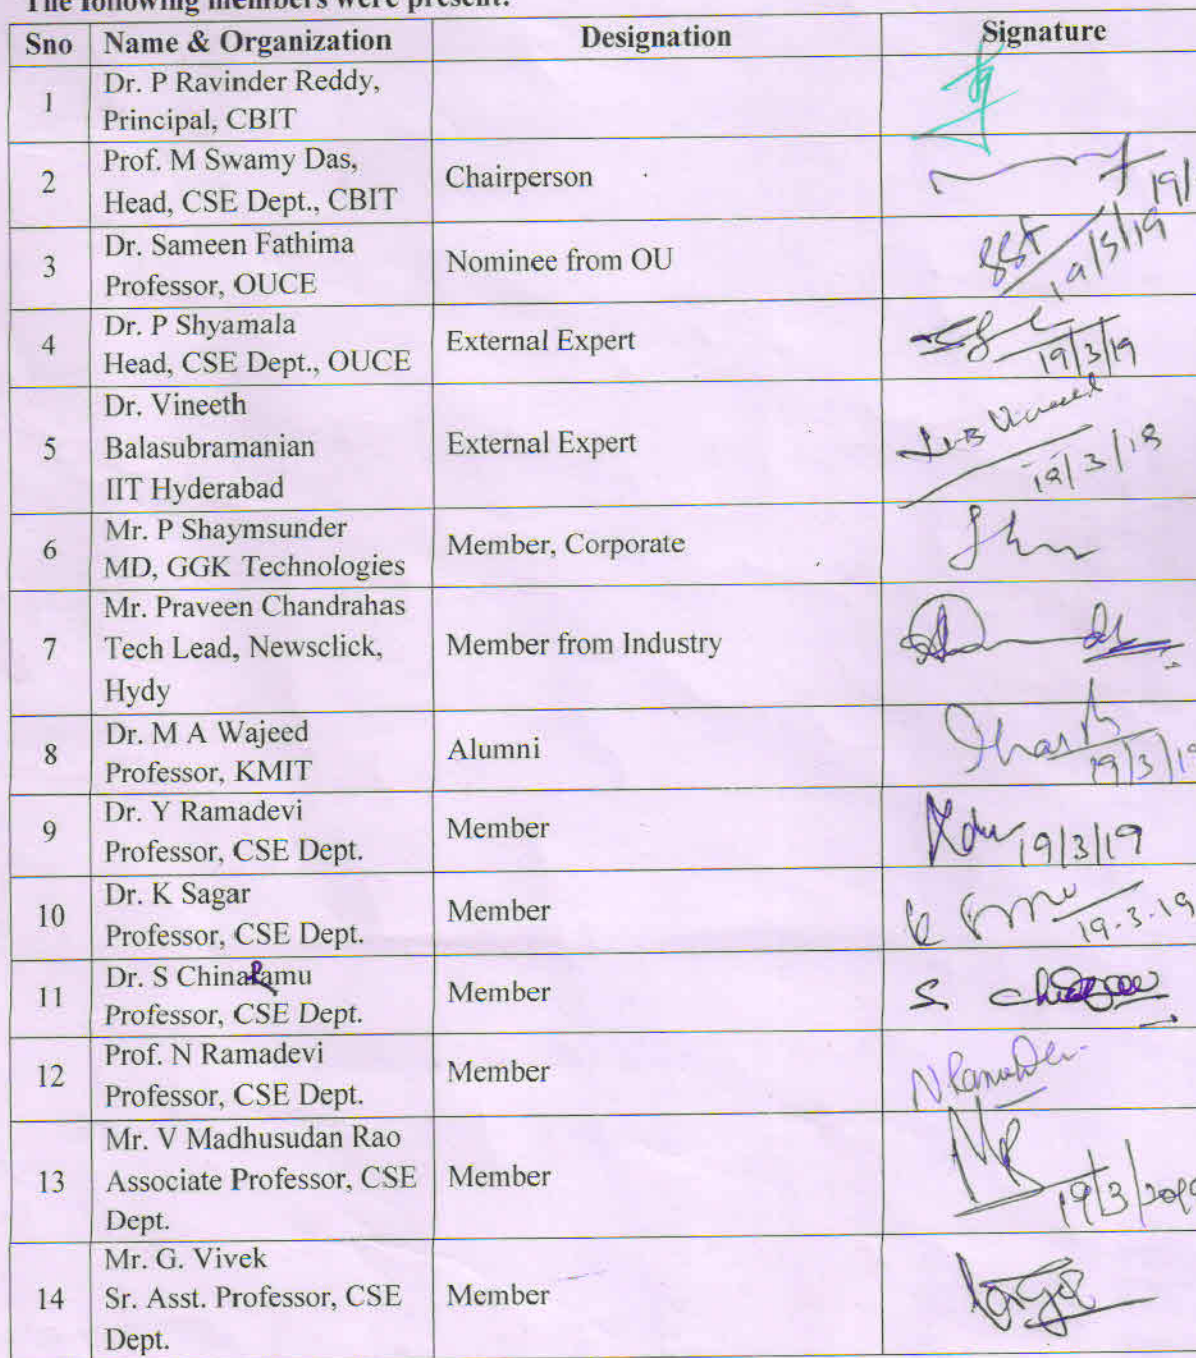 The following members were present:
Sno Name & Organization Designation Signature
1 Dr. P Ravinder Reddy,
Principal, CBIT
2 Prof. M Swamy Das,
Head, CSE Dept., CBIT Chairperson 19/
3 Dr. Sameen Fathima
Professor, OUCE Nominee from OU 19/3/19
4 Dr. P Shyamala
Head, CSE Dept., OUCE External Expert 19/3/19
5 Dr. Vineeth
Balasubramanian
IIT Hyderabad External Expert
6 Mr. P Shaymsunder
MD, GGK Technologies Member, Corporate
7 Mr. Praveen Chandrahas
Tech Lead, Newsclick,
Hydy Member from Industry
8 Dr. M A Wajeed
Professor, KMIT Alumni 19/3/19
9 Dr. Y Ramadevi
Professor, CSE Dept. Member 19/3/19
10 Dr. K Sagar
Professor, CSE Dept. Member 19-3-19
11 Dr. S ChinaRamu
Professor, CSE Dept. Member S.
12 Prof. N Ramadevi
Professor, CSE Dept. Member N RamaDevi
13 Mr. V Madhusudan Rao
Associate Professor, CSE
Dept. Member 19/3/2019
14 Mr. G. Vivek
Sr. Asst. Professor, CSE
Dept. Member